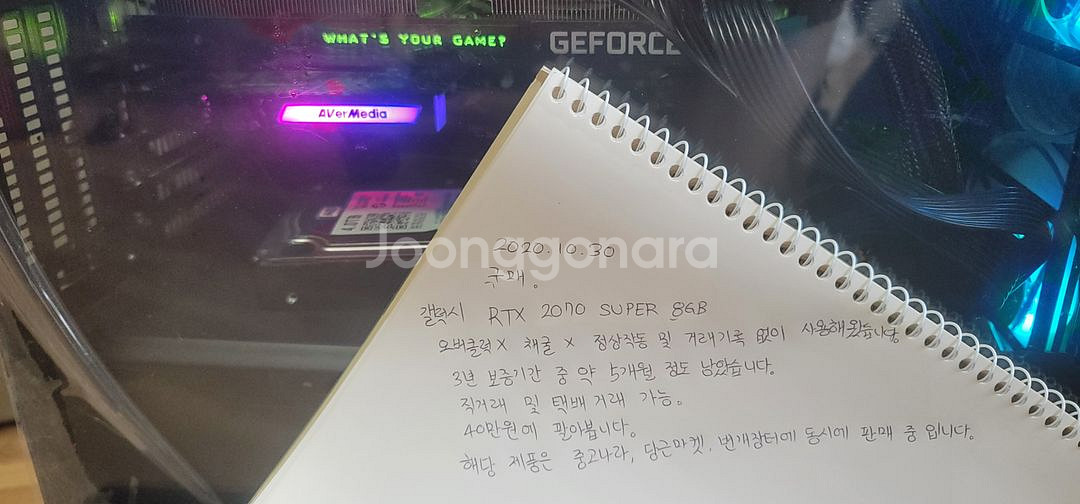 WHAT'S YOUR GAME?
GEFORCE
AVerMedia
4TB
Joonggonara
2020.10.30
구매.
갤럭시 RTX 2070 SUPER 8GB
오버클럭X 채굴X 정상작동 및 거래기록 없이 사용해왔습니다
3년 보증기간 중 약 5개월 정도 남았습니다.
직거래 및 택배거래 가능.
40만원에 팔아봅니다.
해당 제품은 중고나라, 당근마켓, 번개장터에 동시에 판매 중 입니다.